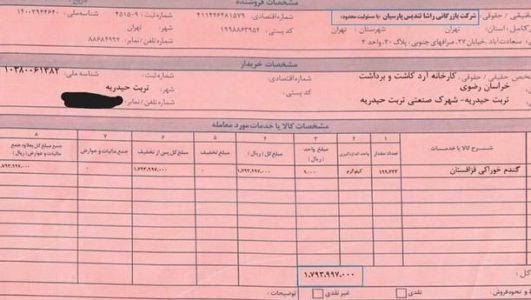 مشخصات فروشنده
حقیقی / حقوقی: شرکت بازرگانی راشا تندیس پارسیان با مسئولیت محدود: شماره اقتصادی: ۴۱۱۴۲۶۴۸۱۵۷۹ شماره ثبت: ۴۵۱۵۰۹ شناسه ملی: ۱۴۰۰۳۹۴۴۶۴۰
استان: تهران شهرستان: تهران کد پستی: ۱۹۹۸۸۶۳۹۵۴ شماره تلفن / نمابر: ۸۸۶۸۴۹۹۲
سعادت آباد، خیابان ۲۷، صرافهای جنوبی، پلاک ۳۰، واحد ۴
مشخصات خریدار
حقیقی / حقوقی: کارخانه آرد کاشت و برداشت شماره اقتصادی: شماره ثبت / شماره ملی: ۱۰۳۸۰۰۶۱۳۸۲
خراسان رضوی کد پستی: تربت حیدریه
تربت حیدریه- شهرک صنعتی تربت حیدریه شماره تلفن / نمابر:
مشخصات کالا یا خدمات مورد معامله
۱ ۲ ۳ ۴ ۵ ۶ ۷ ۸
شرح کالا یا خدمات تعداد مقدار واحد اندازه‌گیری مبلغ واحد (ریال) مبلغ کل (ریال) مبلغ تخفیف مبلغ کل پس از تخفیف جمع مالیات و عوارض جمع مبلغ کل بعلاوه جمع مالیات و عوارض (ریال)
گندم خوراکی قزاقستان کیلوگرم ۹.۰۰۰ ۱.۷۹۳.۹۹۷.۰۰۰ ۰ ۱.۷۹۳.۹۹۷.۰۰۰ ۰ ۱.۷۹۳.۹۹۷.۰۰۰
کل: ۱.۷۹۳.۹۹۷.۰۰۰
نقدی غیر نقدی توضیحات: